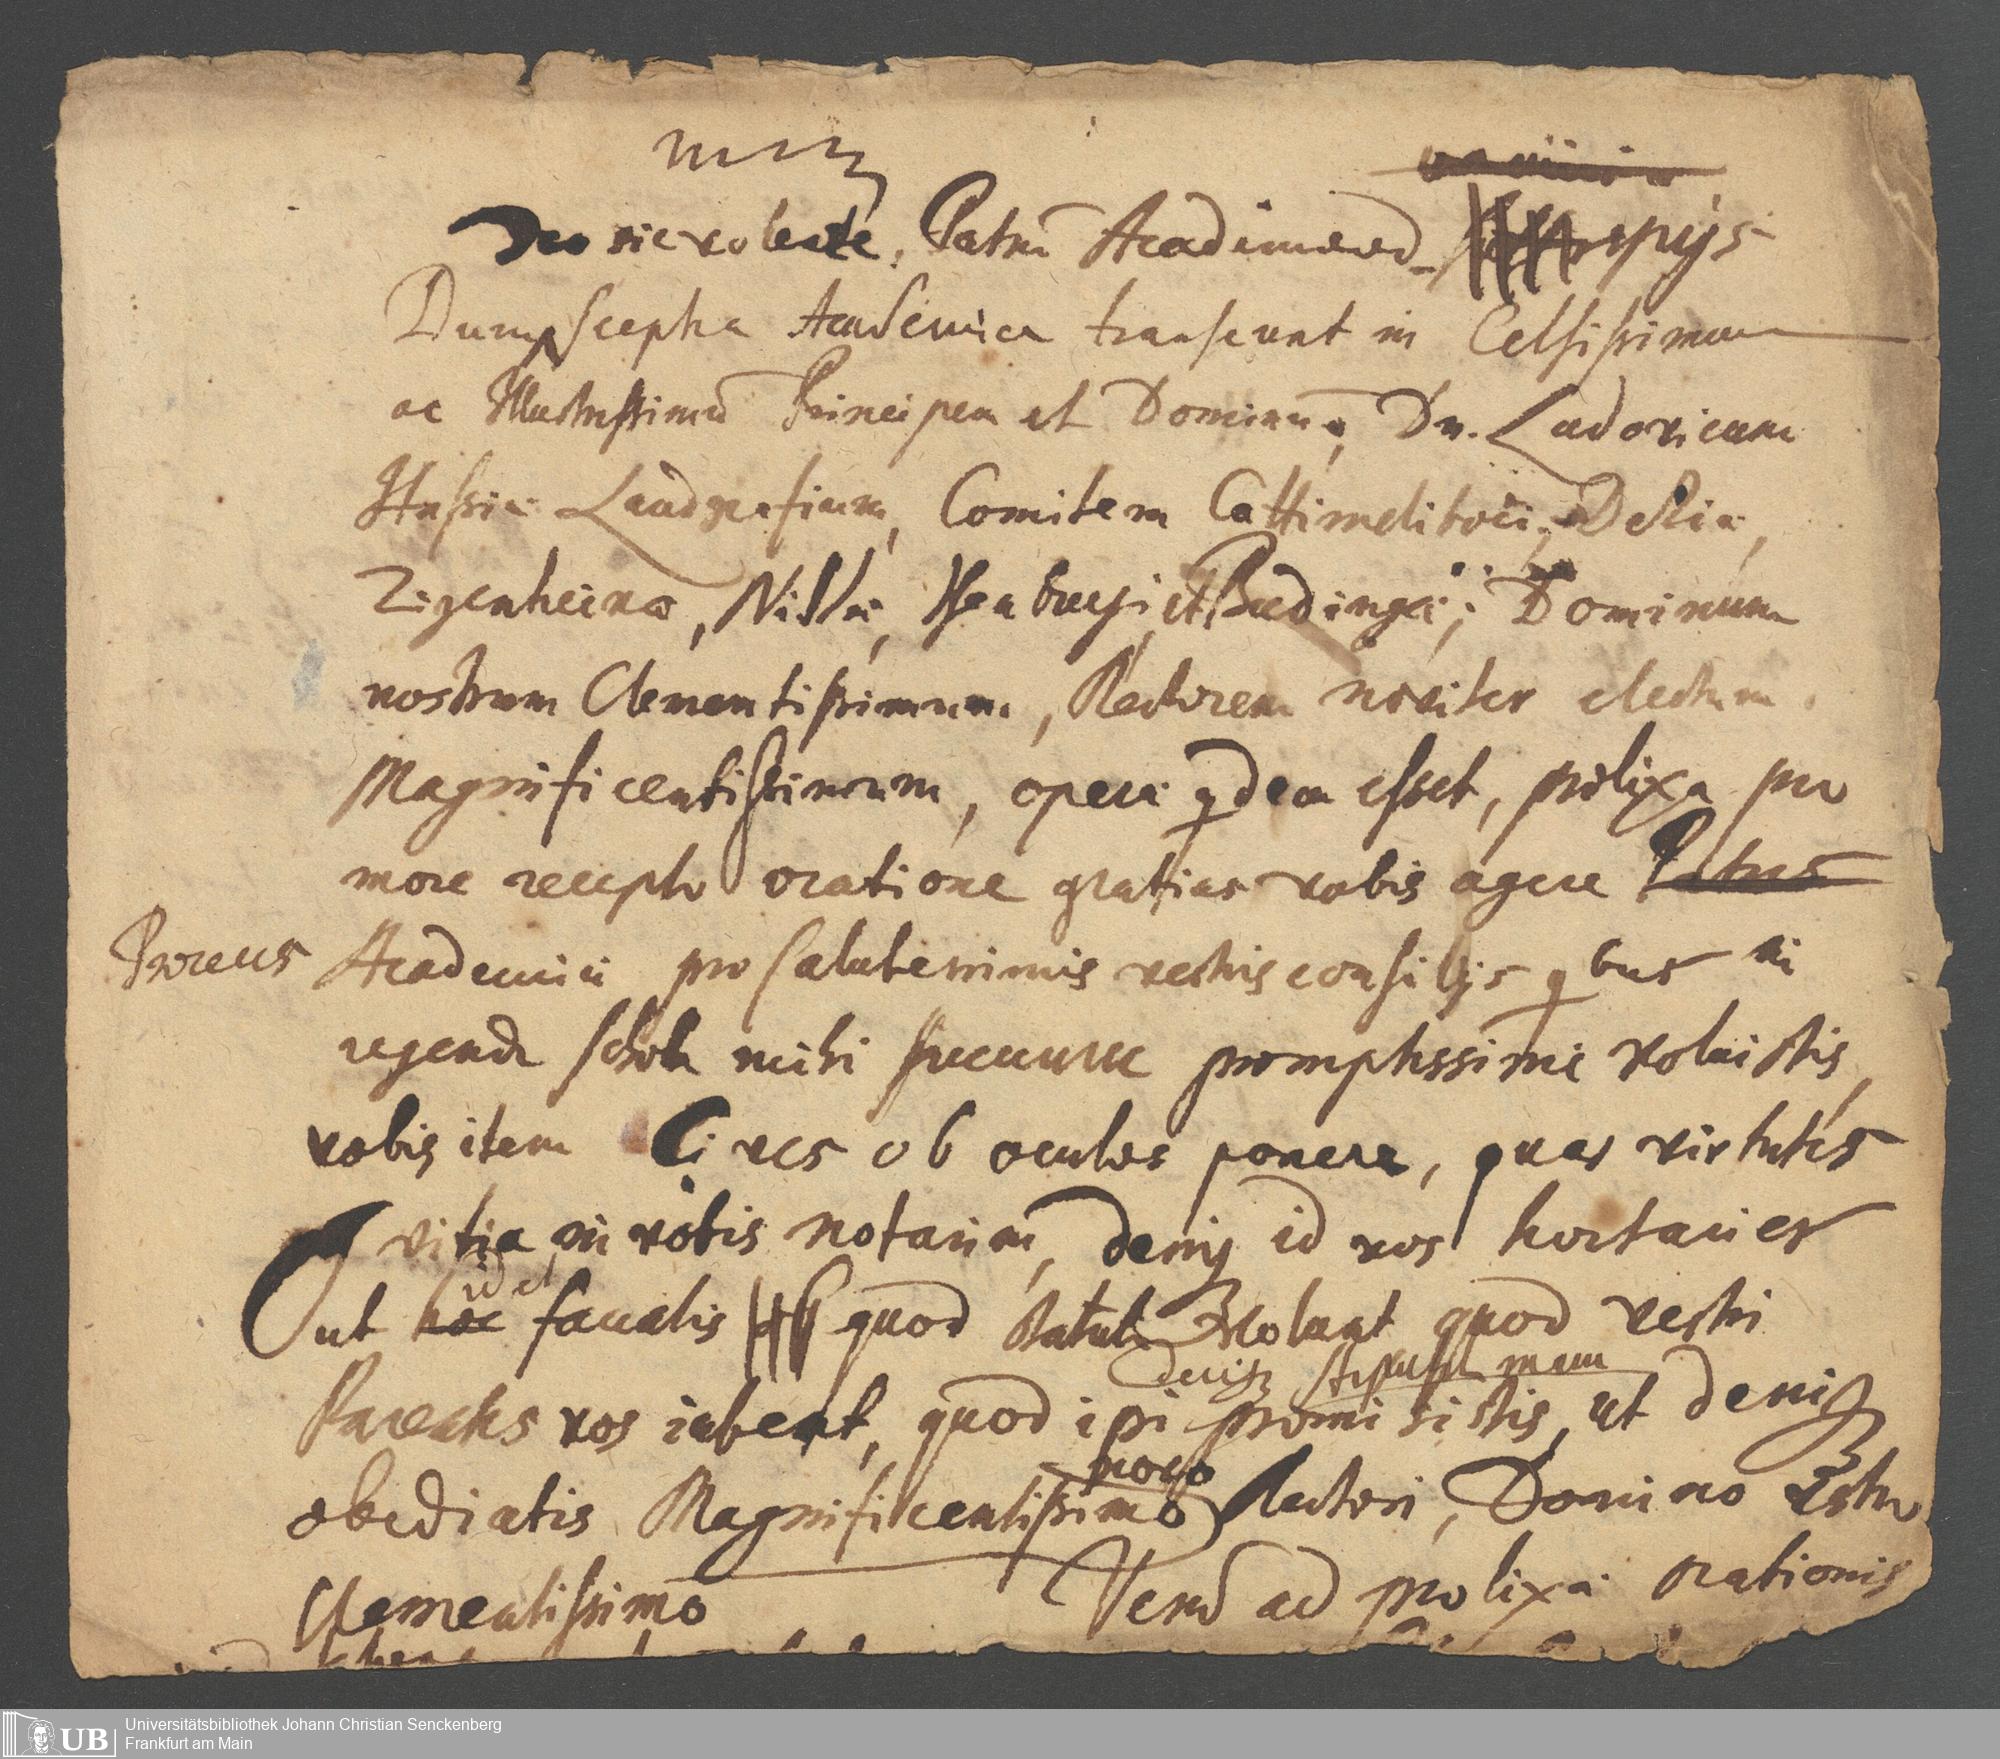 Deo sic volente, Patrū Academicor̄ auspicijs
Dum Sceptra Academica transeunt in Celsissimum
ac Illustrissimū Principem et Dominū, Dn. Ludovicum
Hassiæ Landgrafium, Comitem Cattimeliboci, Deciæ,
Zigenheinæ, Niddæ, Isenburgi et Budingæ; Dominum
nostrum Clementissimum, Rectorem noviter electum
Magnificentissimum, operæ qdem esset, prolixa pro
more recepto oratione gratias vobis agere Patres
Proceres Academici pro saluterrimis vestris consilijs qbus in
regenda schola mihi succurrere promptissime voluistis,
vobis item Cives ob oculos ponere, quas virtutes
vitia in vobis notarim, deniq id vos hortari er
ut hoc id et faveatis quod statuta volunt quod vestri
deniq stipulata manu
Parentes vos iubent, quod ipsi promisistis, ut deniq
novo
obediatis Magnificentissimo Rectori, Domino vestro
Clementissimo Verū ad prolixæ orationis
Universitätsbibliothek Johann Christian Senckenberg
Frankfurt am Main
UB